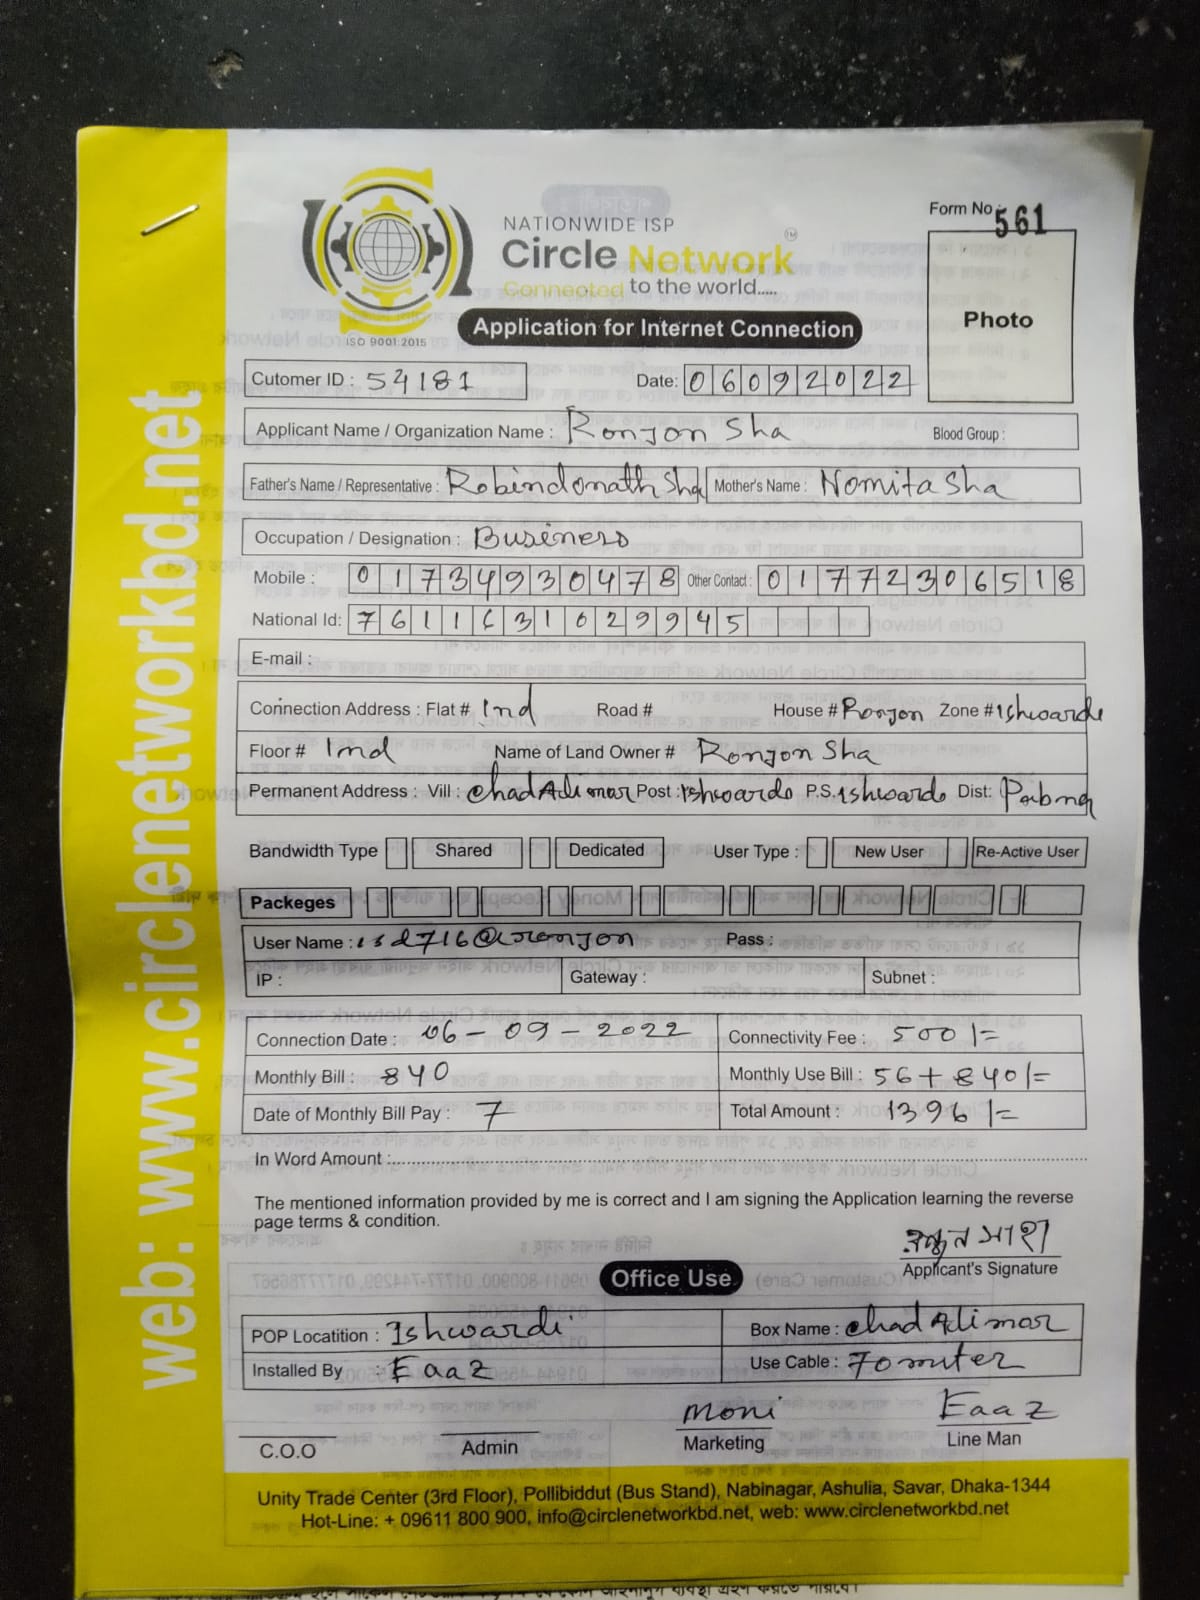 web: www.circlenetworkbd.net
NATIONWIDE ISP
Circle Network TM
Connected to the world.....
ISO 9001:2015
Application for Internet Connection
Form No : 561
Photo
Cutomer ID : 54181 Date: 06092022
Applicant Name / Organization Name : Ronjon Sha Blood Group :
Father's Name / Representative : Robindonath Sha Mother's Name : Nomita Sha
Occupation / Designation : Business
Mobile : 01734930478 Other Contact : 01772306518
National Id: 7611631029945
E-mail :
Connection Address : Flat # Ind Road # House # Ronjon Zone # Ishwarde
Floor # Ind Name of Land Owner # Ronjon Sha
Permanent Address : Vill : chadAlimor Post : Ishwardo P.S. Ishwardo Dist: Pabna
Bandwidth Type Shared Dedicated User Type : New User Re-Active User
Packeges
User Name : isd716@ronjon Pass :
IP : Gateway : Subnet :
Connection Date : 06-09-2022 Connectivity Fee : 500/=
Monthly Bill : 840 Monthly Use Bill : 56+840/=
Date of Monthly Bill Pay : 7 Total Amount : 1396/=
In Word Amount :
The mentioned information provided by me is correct and I am signing the Application learning the reverse
page terms & condition.
রঞ্জন সাহা
Applicant's Signature
Office Use
POP Locatition : Ishwardi Box Name : chad Alimor
Installed By : Eaaz Use Cable : 70 muter
Moni Eaaz
C.O.O Admin Marketing Line Man
Unity Trade Center (3rd Floor), Pollibiddut (Bus Stand), Nabinagar, Ashulia, Savar, Dhaka-1344
Hot-Line: + 09611 800 900, info@circlenetworkbd.net, web: www.circlenetworkbd.net